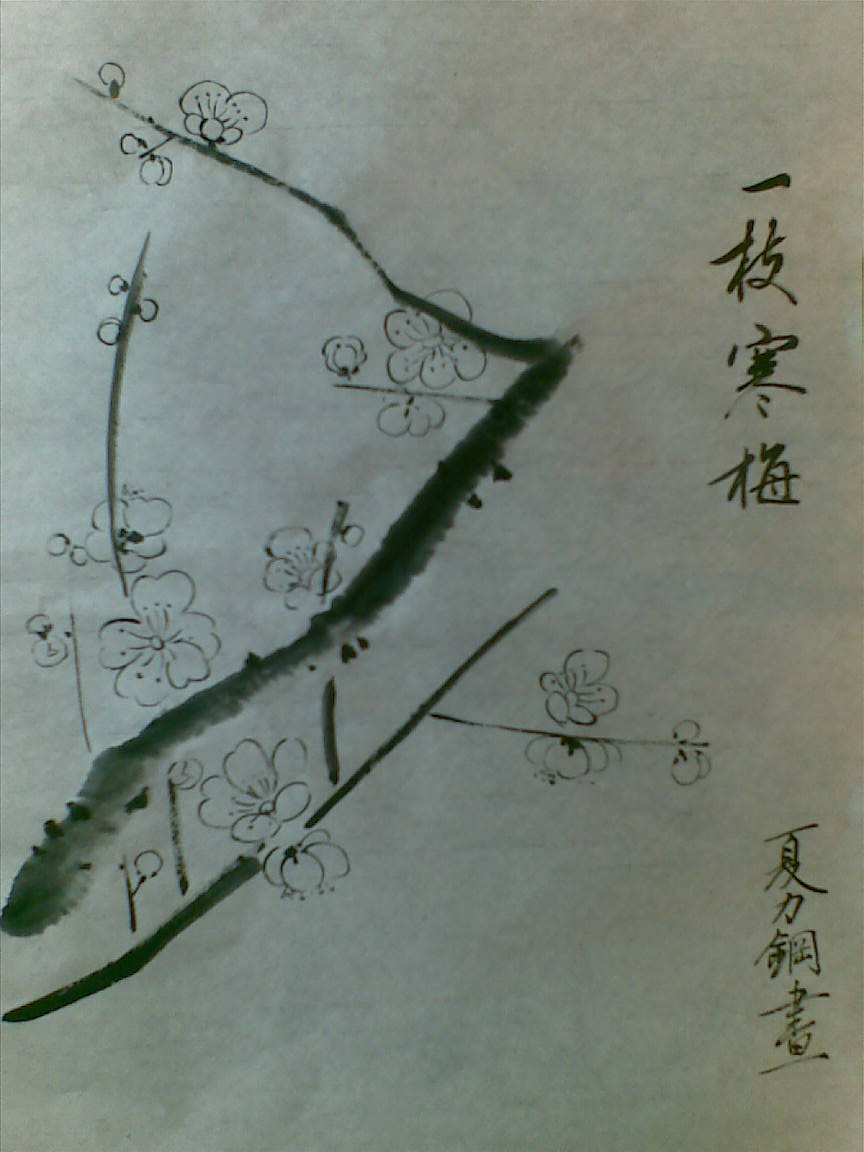 一枝寒梅
夏力鋼畫